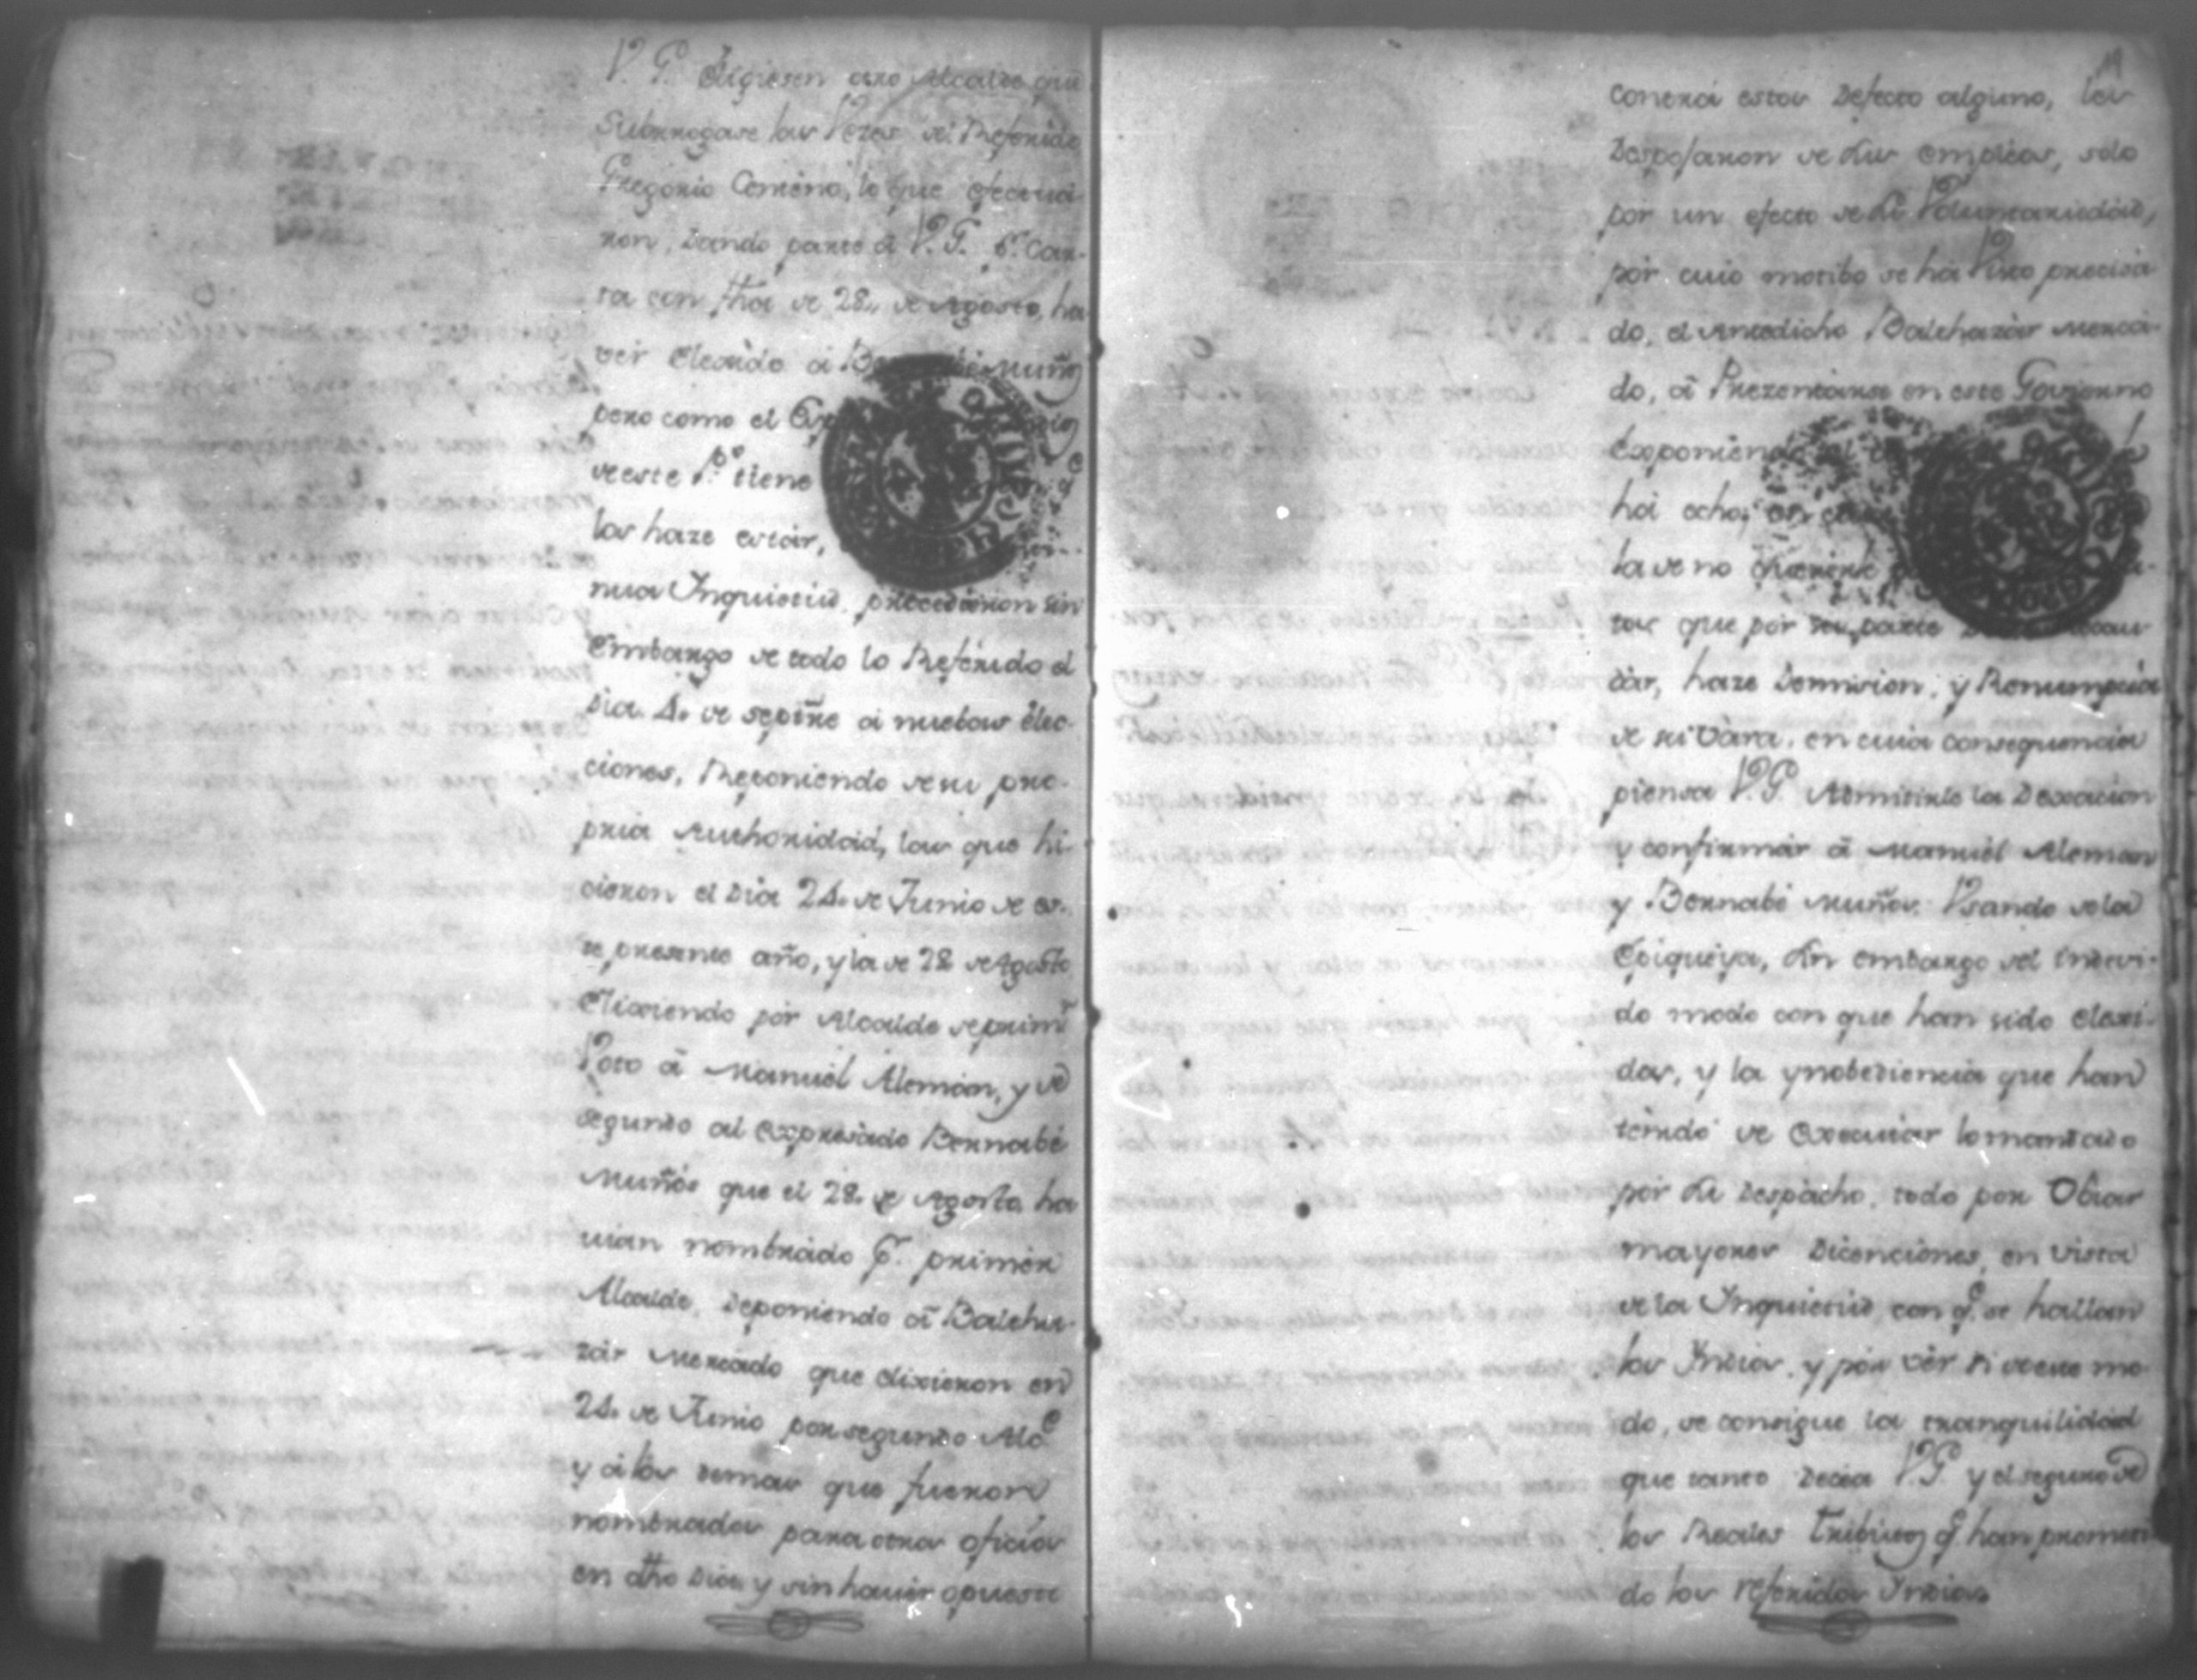 V.S. eligiesen otro Alcalde que
Subrrogase las Vezes del Referido
Gregorio Zenteno, lo que efectua-
ron, dando parte á V.S. pr. Car-
ta con fha de 28. de Agosto, ha
ver Electo á Bernabé Muñoz
pero como el
de este Po. tiene
los haze estar,
nua Inquietud, procedieron sin
embargo de todo lo Referido el
dia 4. de septre a nuebas elec-
ciones, Reponiendo de su pro-
pria Authoridad, las que hi-
cieron el dia 24. de Junio de es-
te presente año, y la de 28 de Agosto
Elixiendo por Alcalde de primr
Voto á Manuel Alemán, y de
segundo al expresado Bernabé
Muños que el 28. de Agosto ha
vian nombrado pr. primer
Alcalde, deponiendo á Baltha-
zar Mercado que elixieron en
24. de Junio por segundo Alce
y á los demas que fueron
nombrados para otros oficios
en dho Dia, y sin haver opuesto
contra estos defecto alguno, los
Despojaron de sus empleos, solo
por un efecto de su Voluntariedad,
por cuio motibo se ha Visto precisa
do, el Antedicho Balthazar Merca-
do, á Prezentarse en este Govierno
Exponiendo el
ha echo, en
la de no quererle
tos que por su parte
dar, haze Demision, y Renumpcia
de su Vara, en cuia consequencia
piensa V.S. Admitirle la Dexacion
y confirmar á Manuel Aleman
y Bernabé Muños. Vsando de la
Epiqueya, sin embargo del indevi-
do modo con que han sido elexi-
dos, y la ynobediencia que han
tenido de executar lo mandado
por su despacho, todo por Obiar
mayores Dicenciones, en vista
de la Inquietud, con qe. se hallan
los Indios, y por ver si de este mo-
do, se consigue la tranquilidad
que tanto Decea V.S. y el seguro de
los Reales Tributos qe han prometi
do los referidos Indios